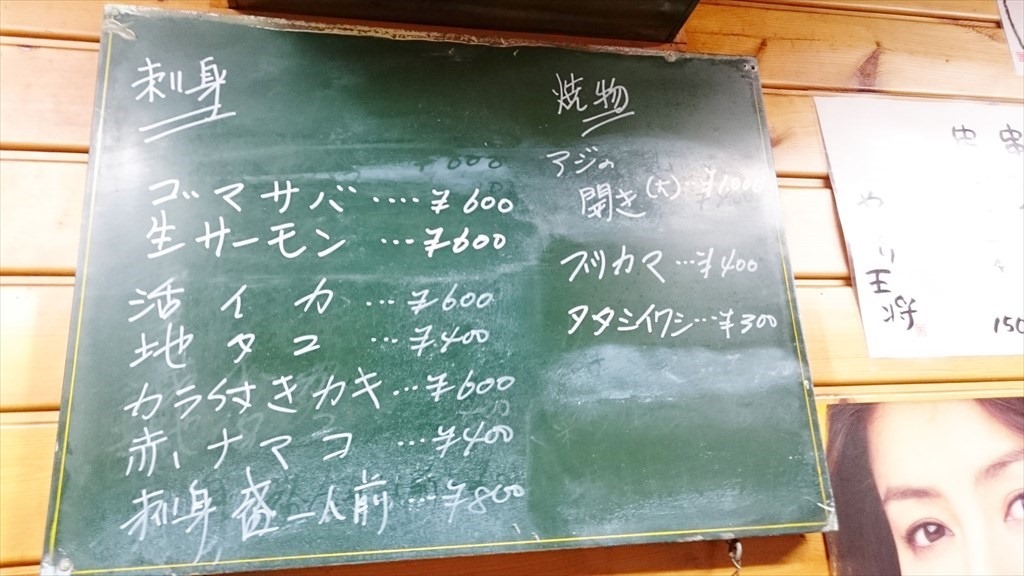 刺身
ゴマサバ‥‥¥600
生サーモン …¥600
活イカ …¥600
地タコ …¥400
カラ付きカキ…¥600
赤ナマコ …¥400
刺身盛一人前…¥800
焼物
アジの
開き(大)…
ブリカマ…¥400
タタミイワシ…¥300
王将
150